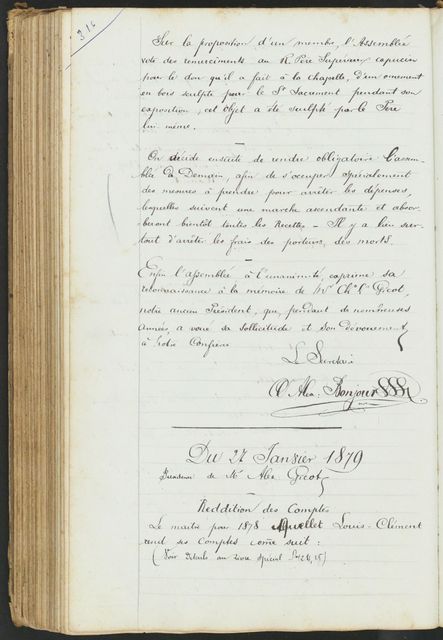 216
Sur la proposition d'un membre, l'Assemblée
vote des remerciments au R. Père Supérieur capucin
pour le don qu'il a fait à la chapelle, d'un ornement
en bois sculpté pour le St Sacrement pendant son
exposition, cet objet a été sculpté par le Père
lui même.
On décide ensuite de rendre obligatoire l'assem-
blée de Demain, afin de s'occuper spécialement
des mesures à prendre pour arrêter les dépenses,
lesquelles suivent une marche ascendante et absor-
beront bientôt toutes les Recettes – Il y a lieu sur-
tout d'arrêter les frais des porteurs, des morts.
Enfin l'assemblée à l'unanimité, exprime sa
reconnaissance à la mémoire de Mr Chs Ls Gicot,
notre ancien Président, qui, pendant de nombreuses
Années, a voué sa sollicitude et son dévouement
à notre Confrérie
Le Secrétaire
Alex. Bonjour
Du 27 Janvier 1879
Présidence de Mr Alex Gicot
Reddition des Comptes
Le maitre pour 1878 Louis-Clément
rend ses Comptes come suit :
(Voir Détails au Livre Spécial